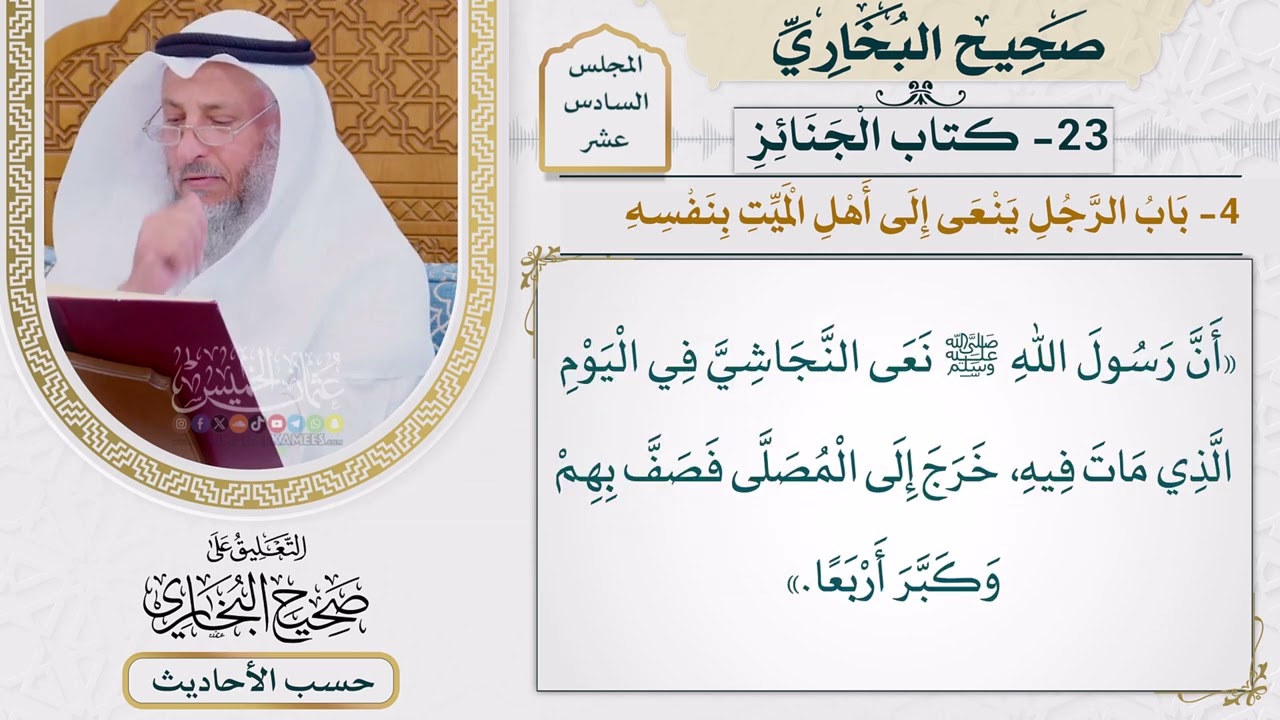 صَحِيح البُخَارِيِّ
23- كتاب الْجَنَائِزِ
المجلس
السادس
عشر
4- بَابُ الرَّجُلِ يَنْعَى إِلَى أَهْلِ الْمَيِّتِ بِنَفْسِهِ
«أَنَّ رَسُولَ اللهِ ﷺ نَعَى النَّجَاشِيَّ فِي الْيَوْمِ
الَّذِي مَاتَ فِيهِ، خَرَجَ إِلَى الْمُصَلَّى فَصَفَّ بِهِمْ
وَكَبَّرَ أَرْبَعًا.»
عثمان الخميس
التَّعْلِيقُ عَلَى
صَحِيحُ البُخَارِي
حسب الأحاديث